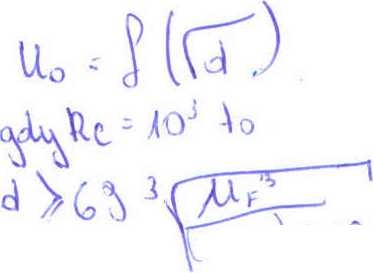 u₀ = f(√d)
gdy Re = 10³ to
d ≥ 69 ³√μ_F³